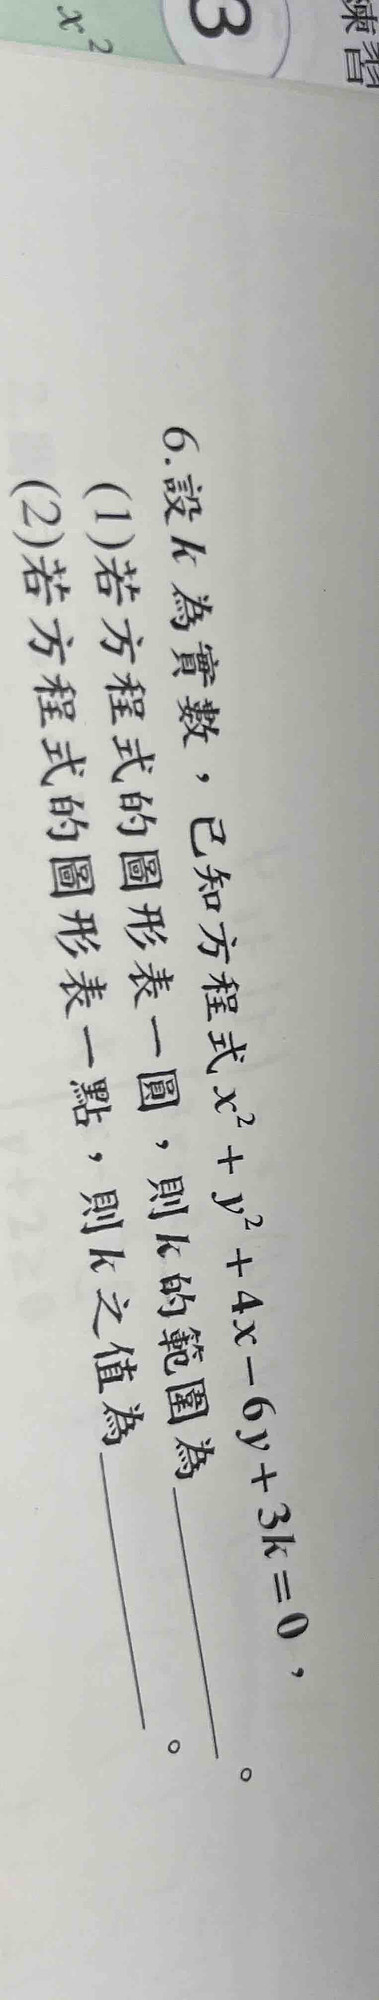 練習
3
x²
6.設k為實數，已知方程式x²+y²+4x-6y+3k=0，
(1)若方程式的圖形表一圓，則k的範圍為＿＿＿＿＿。
(2)若方程式的圖形表一點，則k之值為＿＿＿＿＿。